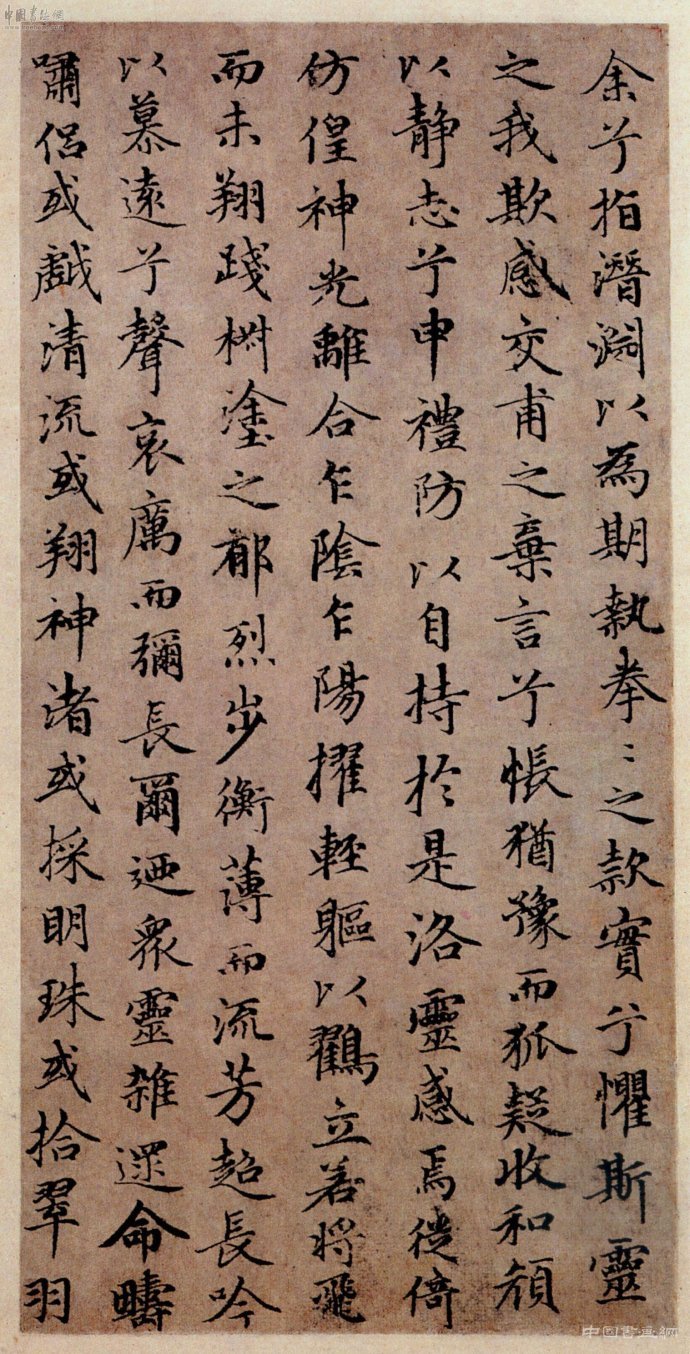 余兮指潛淵以為期執拳〻之款實兮懼斯靈
之我欺感交甫之棄言兮悵猶豫而狐疑收和顏
以靜志兮申禮防以自持於是洛靈感焉徙倚
仿偟神光離合乍陰乍陽擢輕軀以鶴立若將飛
而未翔踐椒塗之郁烈步衡薄而流芳超長吟
以慕遠兮聲哀厲而彌長爾迺眾靈雜遝命疇
嘯侶或戲清流或翔神渚或採明珠或拾翠羽
中國書法網
中国書画網